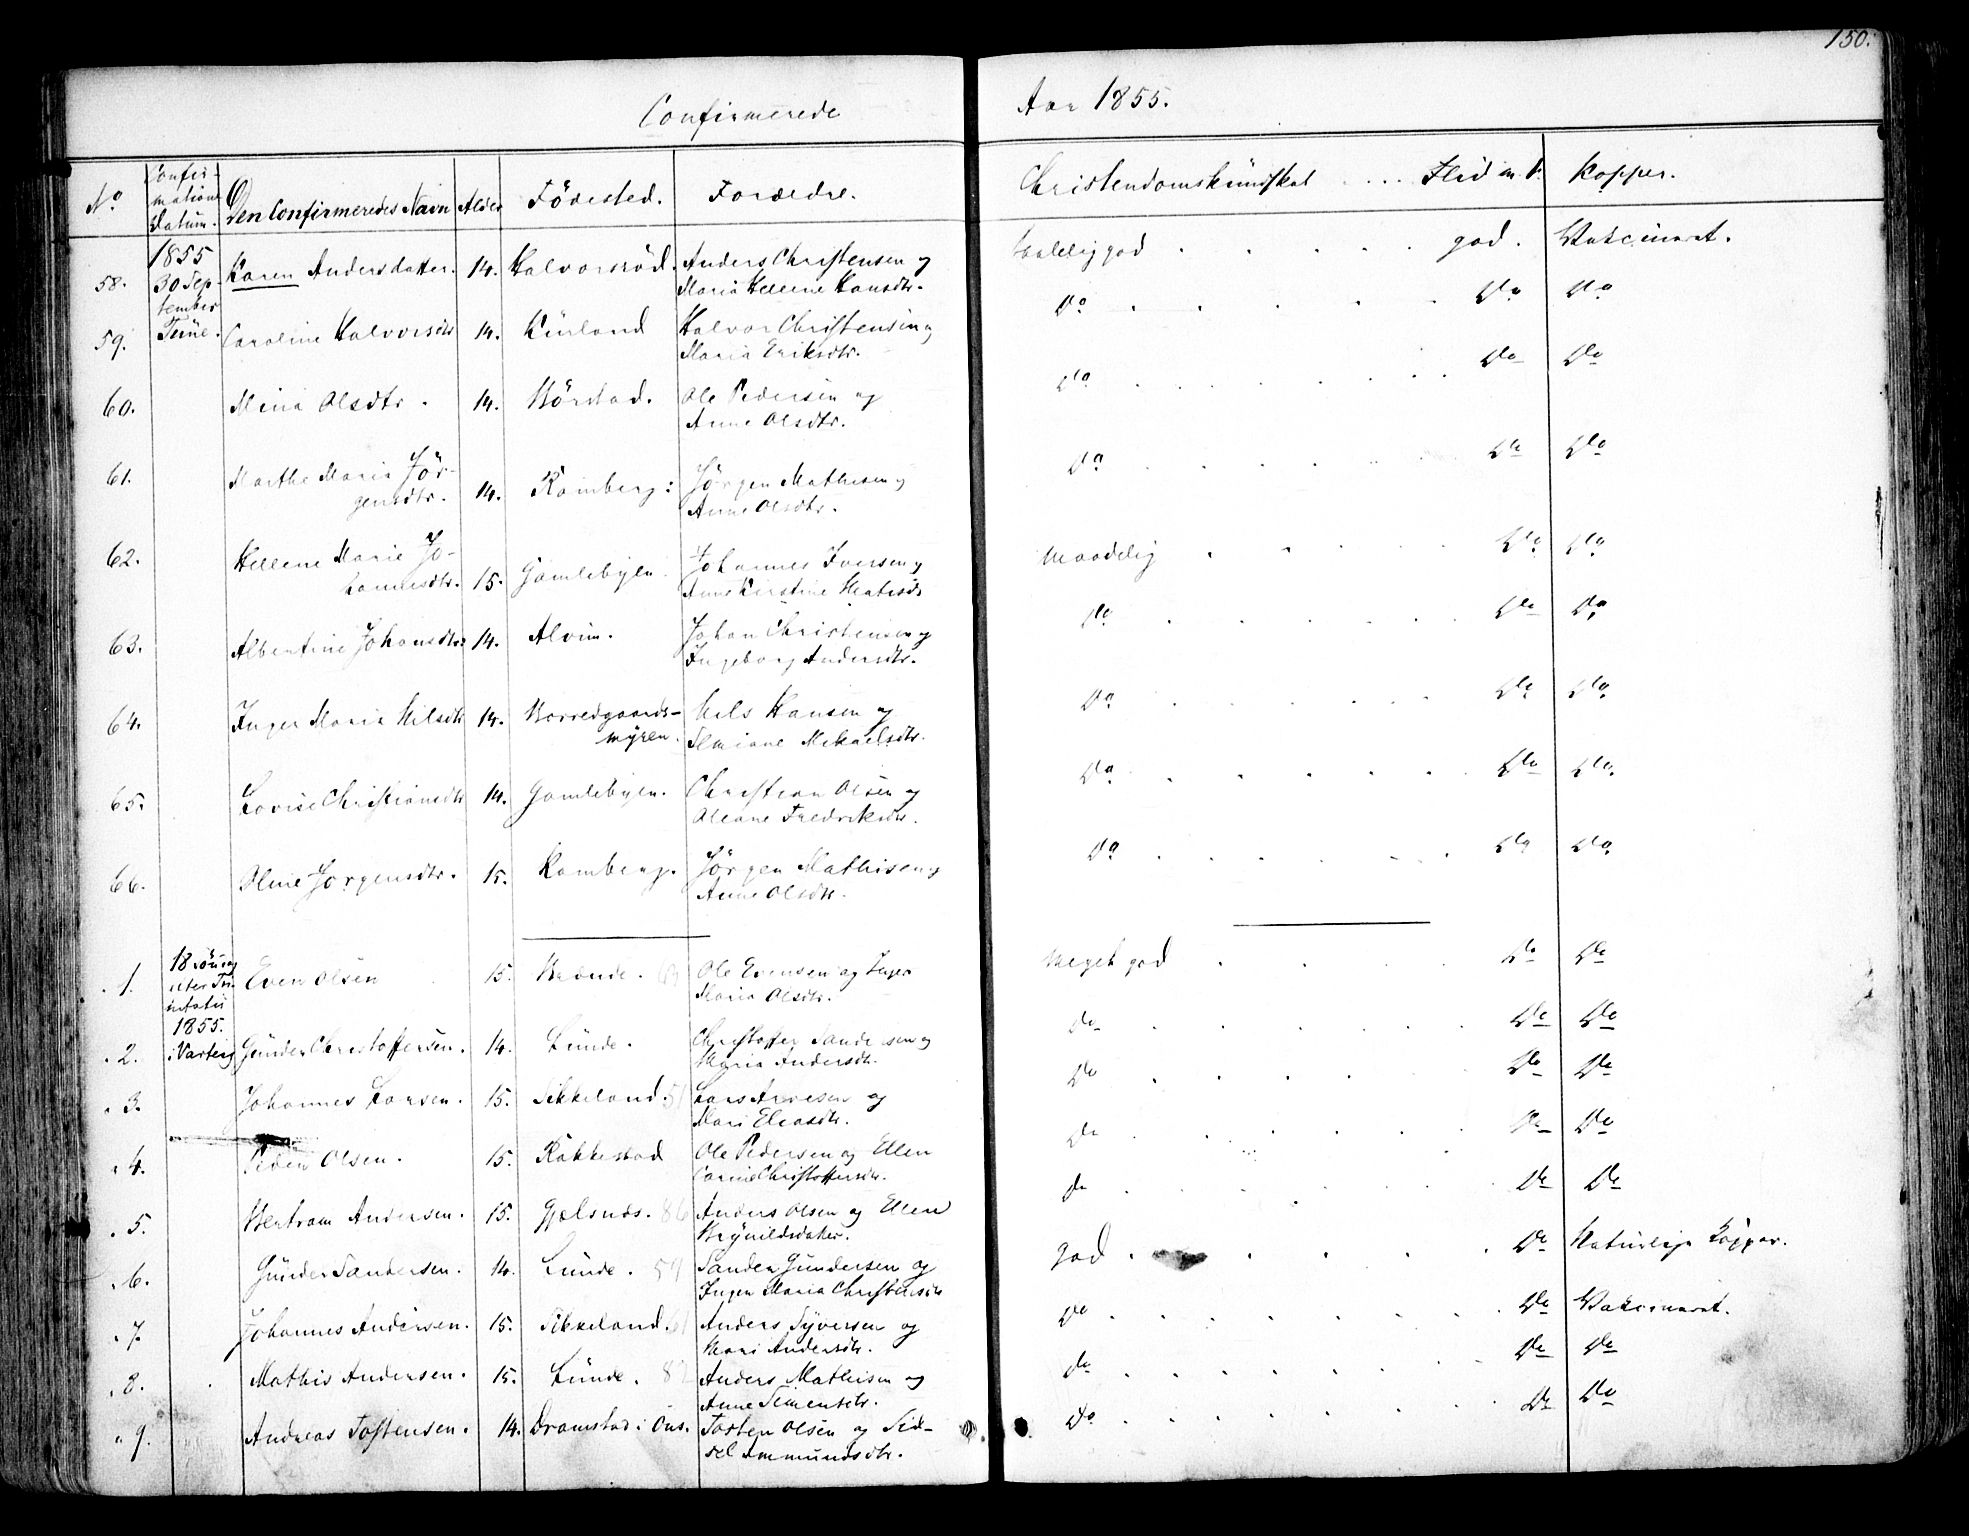 150.
Confirmerede
Aar 1855.
No
Confir-
mations
Datum.
Den Confirmeredes Navn
Alder
Födested.
Forældre.
Christendomskundskab . . . . Flid m. V.
Kopper.
58.
1855
30 Sep-
tember
Tune.
Karen Andersdatter.
14.
Halvorsröd.
Anders Christensen og
Maria Hellene Hansdtr.
god . Vakcineret.
59.
Caroline Halvorsdtr
14.
Kurland
Halvor Christensen og
Maria Eriksdtr.
Do . . . . . Do Do
60.
Mina Olsdtr.
14.
Ole Pedersen og
Anne Olsdtr.
Do . . . . . Do Do
61.
Marthe Maria Jör-
gensdtr.
14.
Ramberg:
Jörgen Mathisen og
Anne Olsdtr.
Do . . . . . Do Do
62.
Hellene Marie Jo-
hannesdtr.
15.
Gamlebyen
Johannes Iversen og
Anne Kirstine Matisdtr
Maadelig . . . . . Do Do
63.
Albertine Johansdtr.
14.
Alvim.
Johan Christensen og
Ingeborg Andersdtr.
Do . . . . . Do Do
64.
Inger Maria Nilsdtr
14.
Borredgaards-
myren.
Nils Hansen og
Mikaelsdtr.
Do . . . . . Do Do
65.
Lovise Christiansdtr
14.
Gamlebyen.
Christian Olsen og
Oleane Fredriksdtr.
Do . . . . . Do Do
66.
Oline Jörgensdtr.
15.
Ramberg.
Jörgen Mathisen og
Anne Olsdtr.
Do . . . . . Do Do
1.
18 söndag
efter Tri-
nitatis
1855.
i Varteig
Even Olsen
15.
Brönde.
Ole Evensen og Inger
Maria Olsdtr.
Meget god . . . . Do Do
2.
Gunder Christoffersen.
14.
Lunde.
Christoffer Sandersen og
Maria Andersdtr.
Do . . . . . Do Do
3.
Johannes Larsen.
15.
Sikkeland. 51
Lars Arvesen og
Mari Eliasdtr.
Do . . . . . Do Do
4.
Peder Olsen.
15.
Rakkestad
Ole Pedersen og Ellen
Carine Christoffersdtr.
Do . . . . . Do Do
5.
Bertram Andersen.
15.
Gjelsnæs. 86
Anders Olsen og Ellen
Brynildsdatter.
Do . . . . . Do Do
6.
Gunder Sandersen.
14.
Lunde. 59
Sander Gundersen og
Inger Maria Christensdtr
god . . . . . Do Naturlige Kopper.
7.
Johannes Andersen.
15.
Sikkeland. 61
Anders Syversen og
Mari Andersdtr.
Do . . . . . Do Vakcineret.
8.
Mathis Andersen.
15.
Lunde. 82
Anders Mathisen og
Anne Simensdtr.
Do . . . . . Do Do
9.
Andreas Tostensen.
14.
Dramstad i Ons.
Tosten Olsen og Sid-
sel Ammundsdtr.
Do . . . . . Do Do